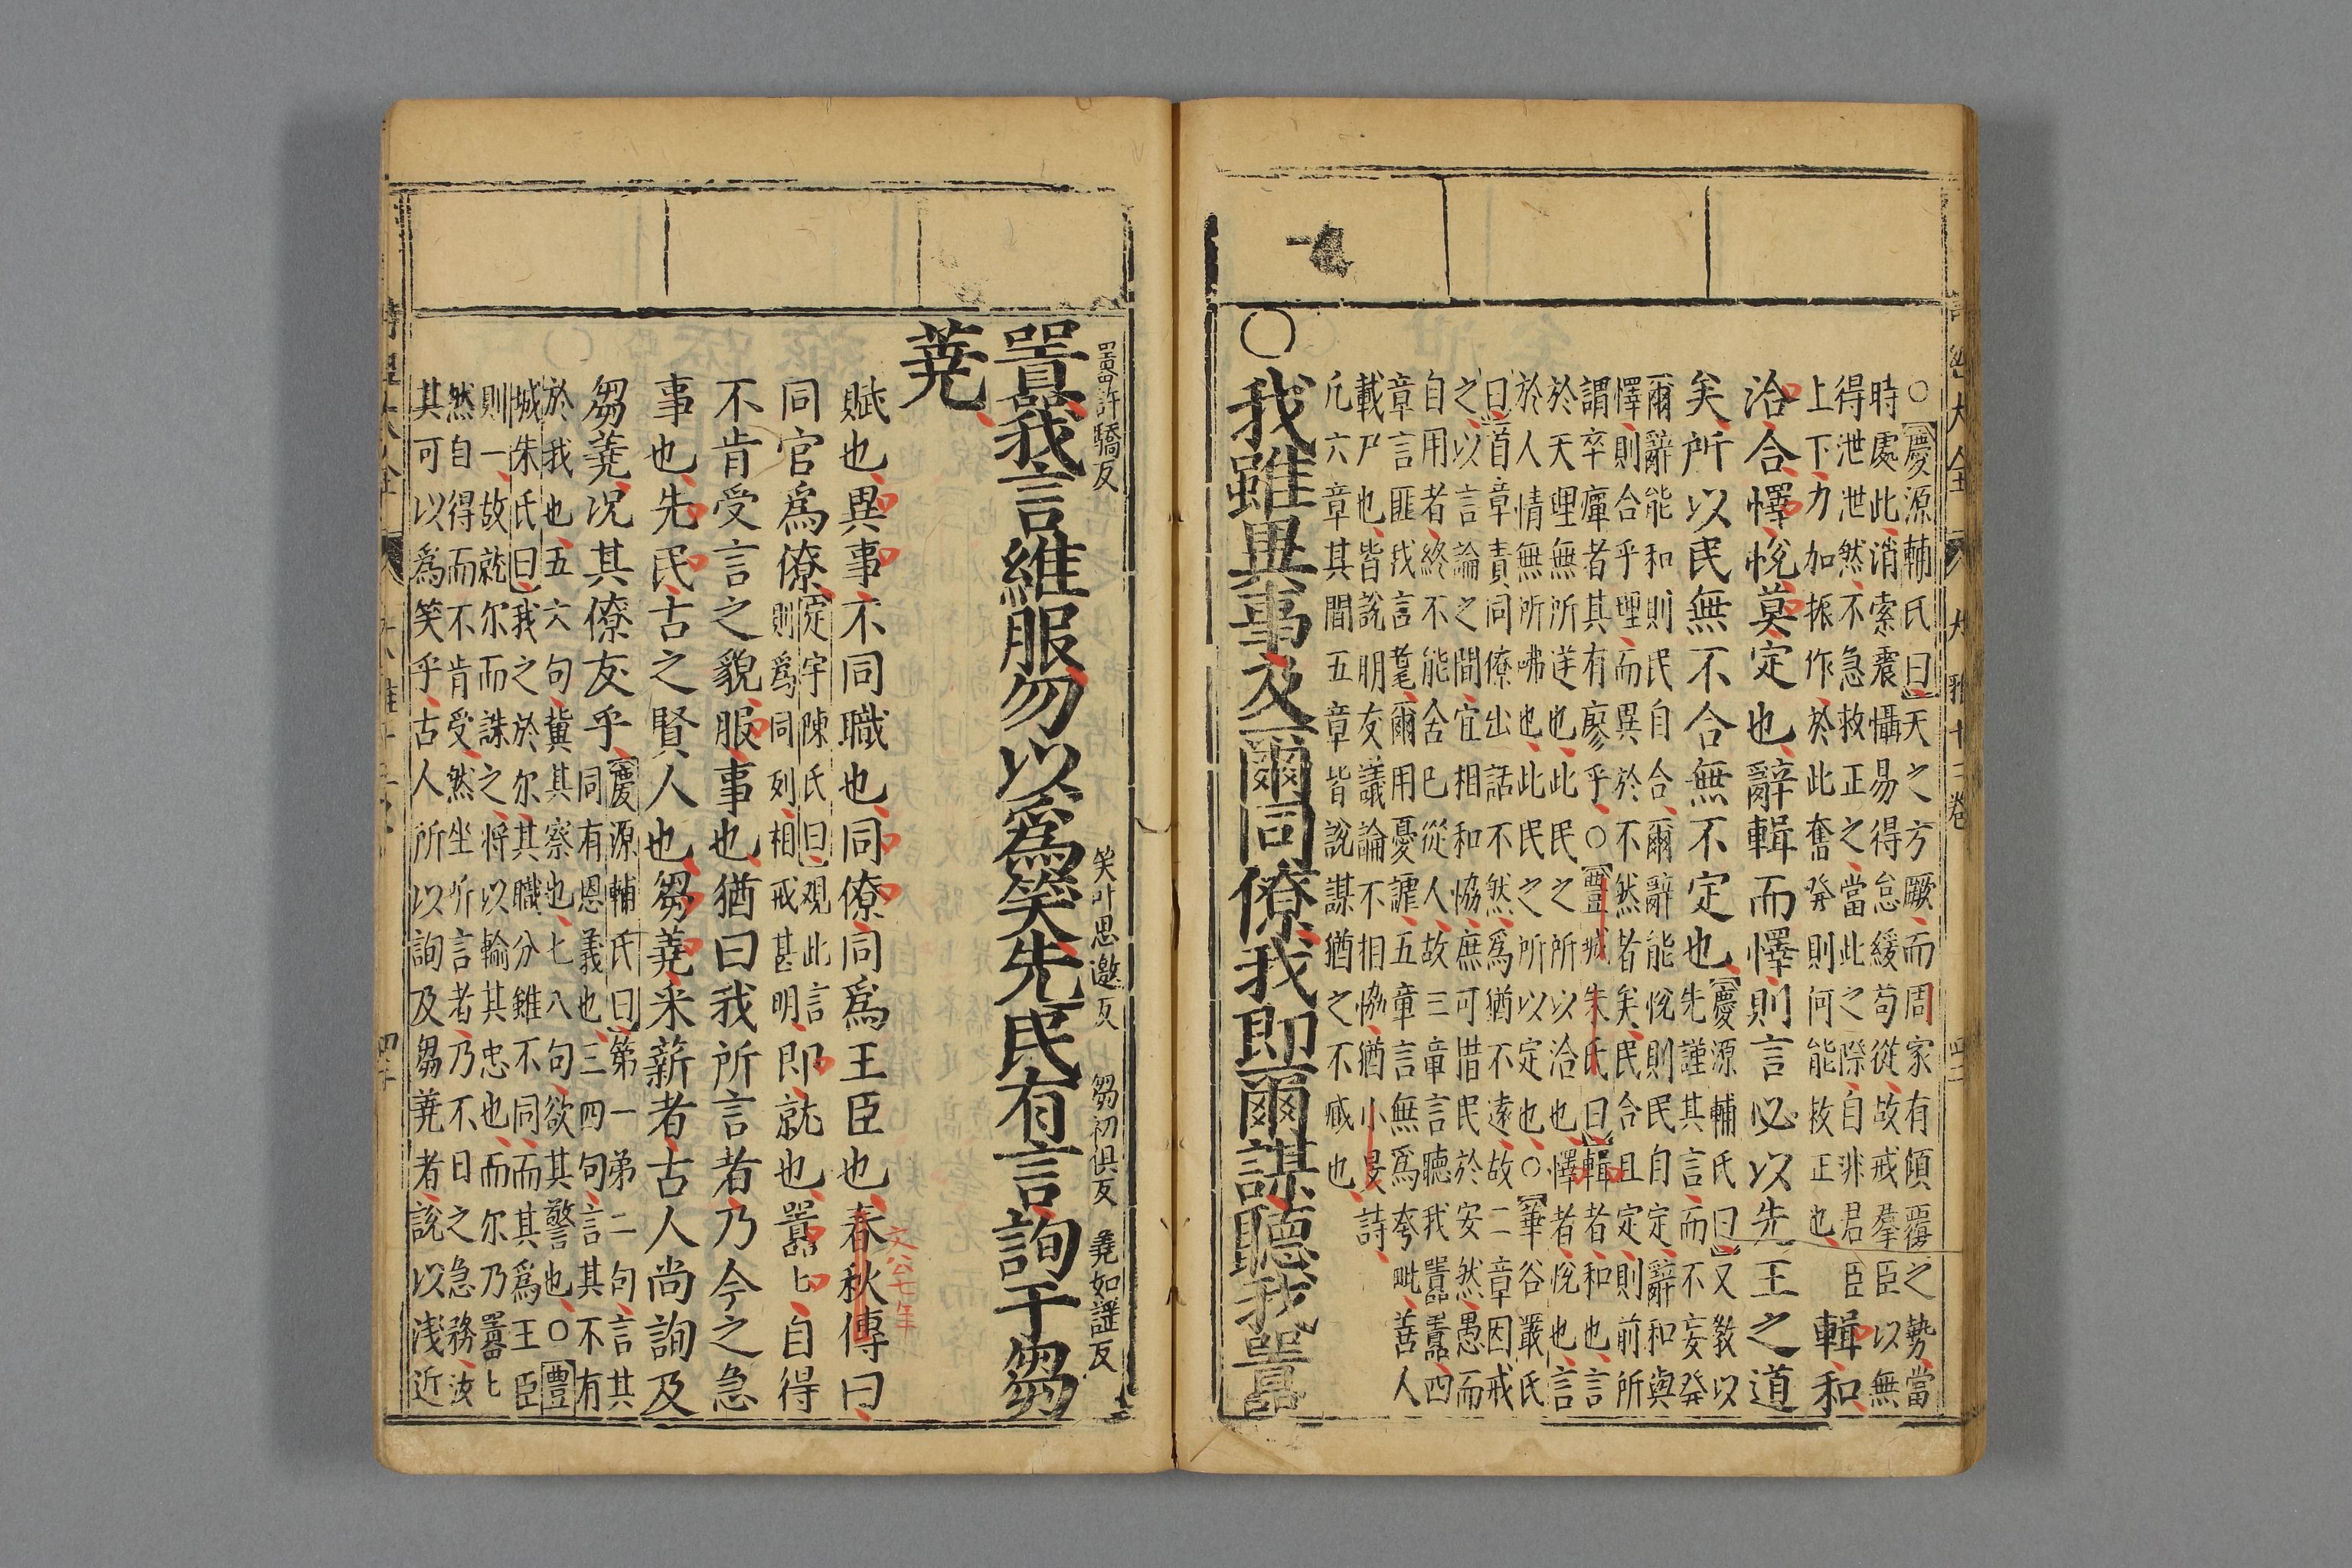 ○慶源輔氏曰天之方蹶而周家有傾覆之勢當
時處此消索震懾易得怠緩苟從故戒羣臣以無
得泄泄然不急救正之當此之際自非君臣
上下力加振作於此奮發則何能救正也
輯和
洽合懌悅莫定也辭輯而懌則言必以先王之道
矣所以民無不合無不定也
慶源輔氏曰又教以
先謹其言而不妄發
爾辭能和則民自合爾辭能悅則民自定辭和與
懌則合乎理而異於不然者矣民合且定則前所
謂卒癉者其有廖乎○豐城朱氏曰輯者和也言
於天理無所逆也此民之所以洽也懌者悅也言
於人情無所咈也此民之所以定也○華谷嚴氏
曰首章責同僚出話不然為猶不遠故二章因戒
之以言論之間宜相和恊庶可惜民於安然愚而
自用者終不能舍已從人故三章言聽我囂囂四
章言匪我言耄爾用憂謔五章言無為夸毗善人
載尸也皆說朋友議論不相恊猶小旻詩
凡六章其間五章皆說謀猶之不臧也
○我雖異事及爾同僚我即爾謀聽我囂
囂許驕反
笑叶思邀反
芻初俱反
蕘如謡反
囂我言維服勿以爲笑先民有言詢于芻
蕘
文公七年
賦也異事不同職也同僚同爲王臣也春秋傳曰
同官爲僚
定宇陳氏曰觀此言
則爲同列相戒甚明
即就也囂匕自得
不肯受言之貌服事也猶曰我所言者乃今之急
事也先民古之賢人也芻蕘采薪者古人尚詢及
芻蕘况其僚友乎
慶源輔氏曰第一第二句言其
同有恩義也三四句言其不有
於我也五六句冀其察也七八句欲其警也○豐
城朱氏曰我之於尔其職分雖不同而其爲王臣
則一故就尔而誅之將以輸其忠也而尔乃囂匕
然自得而不肯受然坐听言者乃不曰之急務汝
其可以爲笑乎古人所以詢及芻蕘者說以淺近